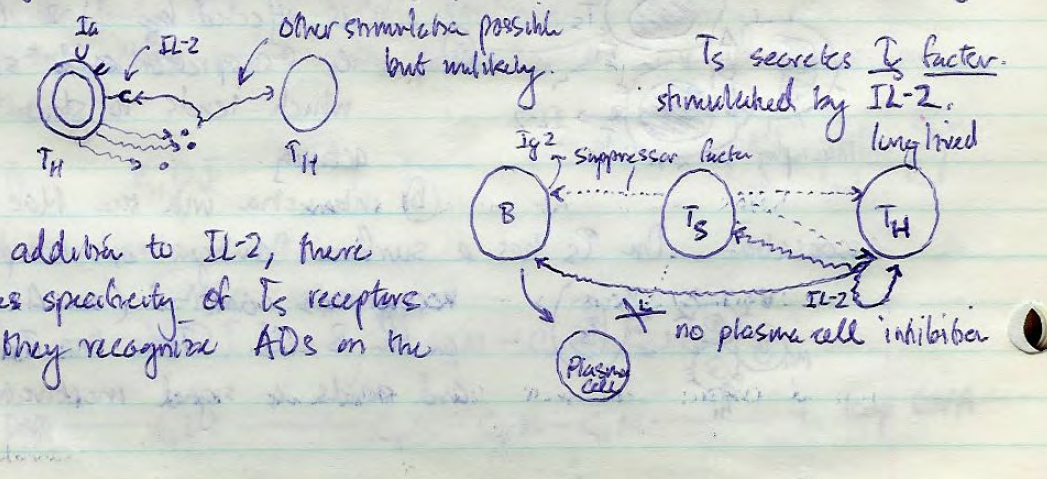 Ia
IL-2
Other stimulation possible
but unlikely.
TH
TH
Ts secretes Ts factor.
stimulated by IL-2.
long lived
Ig2
suppressor factor
B
Ts
TH
IL-2
no plasma cell inhibition
Plasma
cell
addition to IL-2, there
es specificity of Ts receptors
they recognize ADs on the